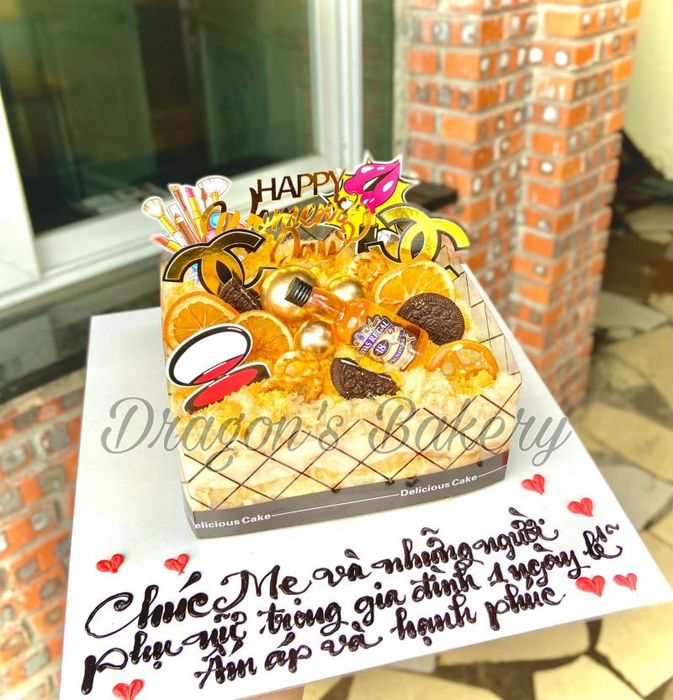 HAPPY
Women's
Day
CHIVAS REGAL
18
Dragon's Bakery
Delicious Cake
Delicious Cake
Chúc Mẹ và những người
phụ nữ trong gia đình 1 ngày lễ
Ấm áp và hạnh phúc